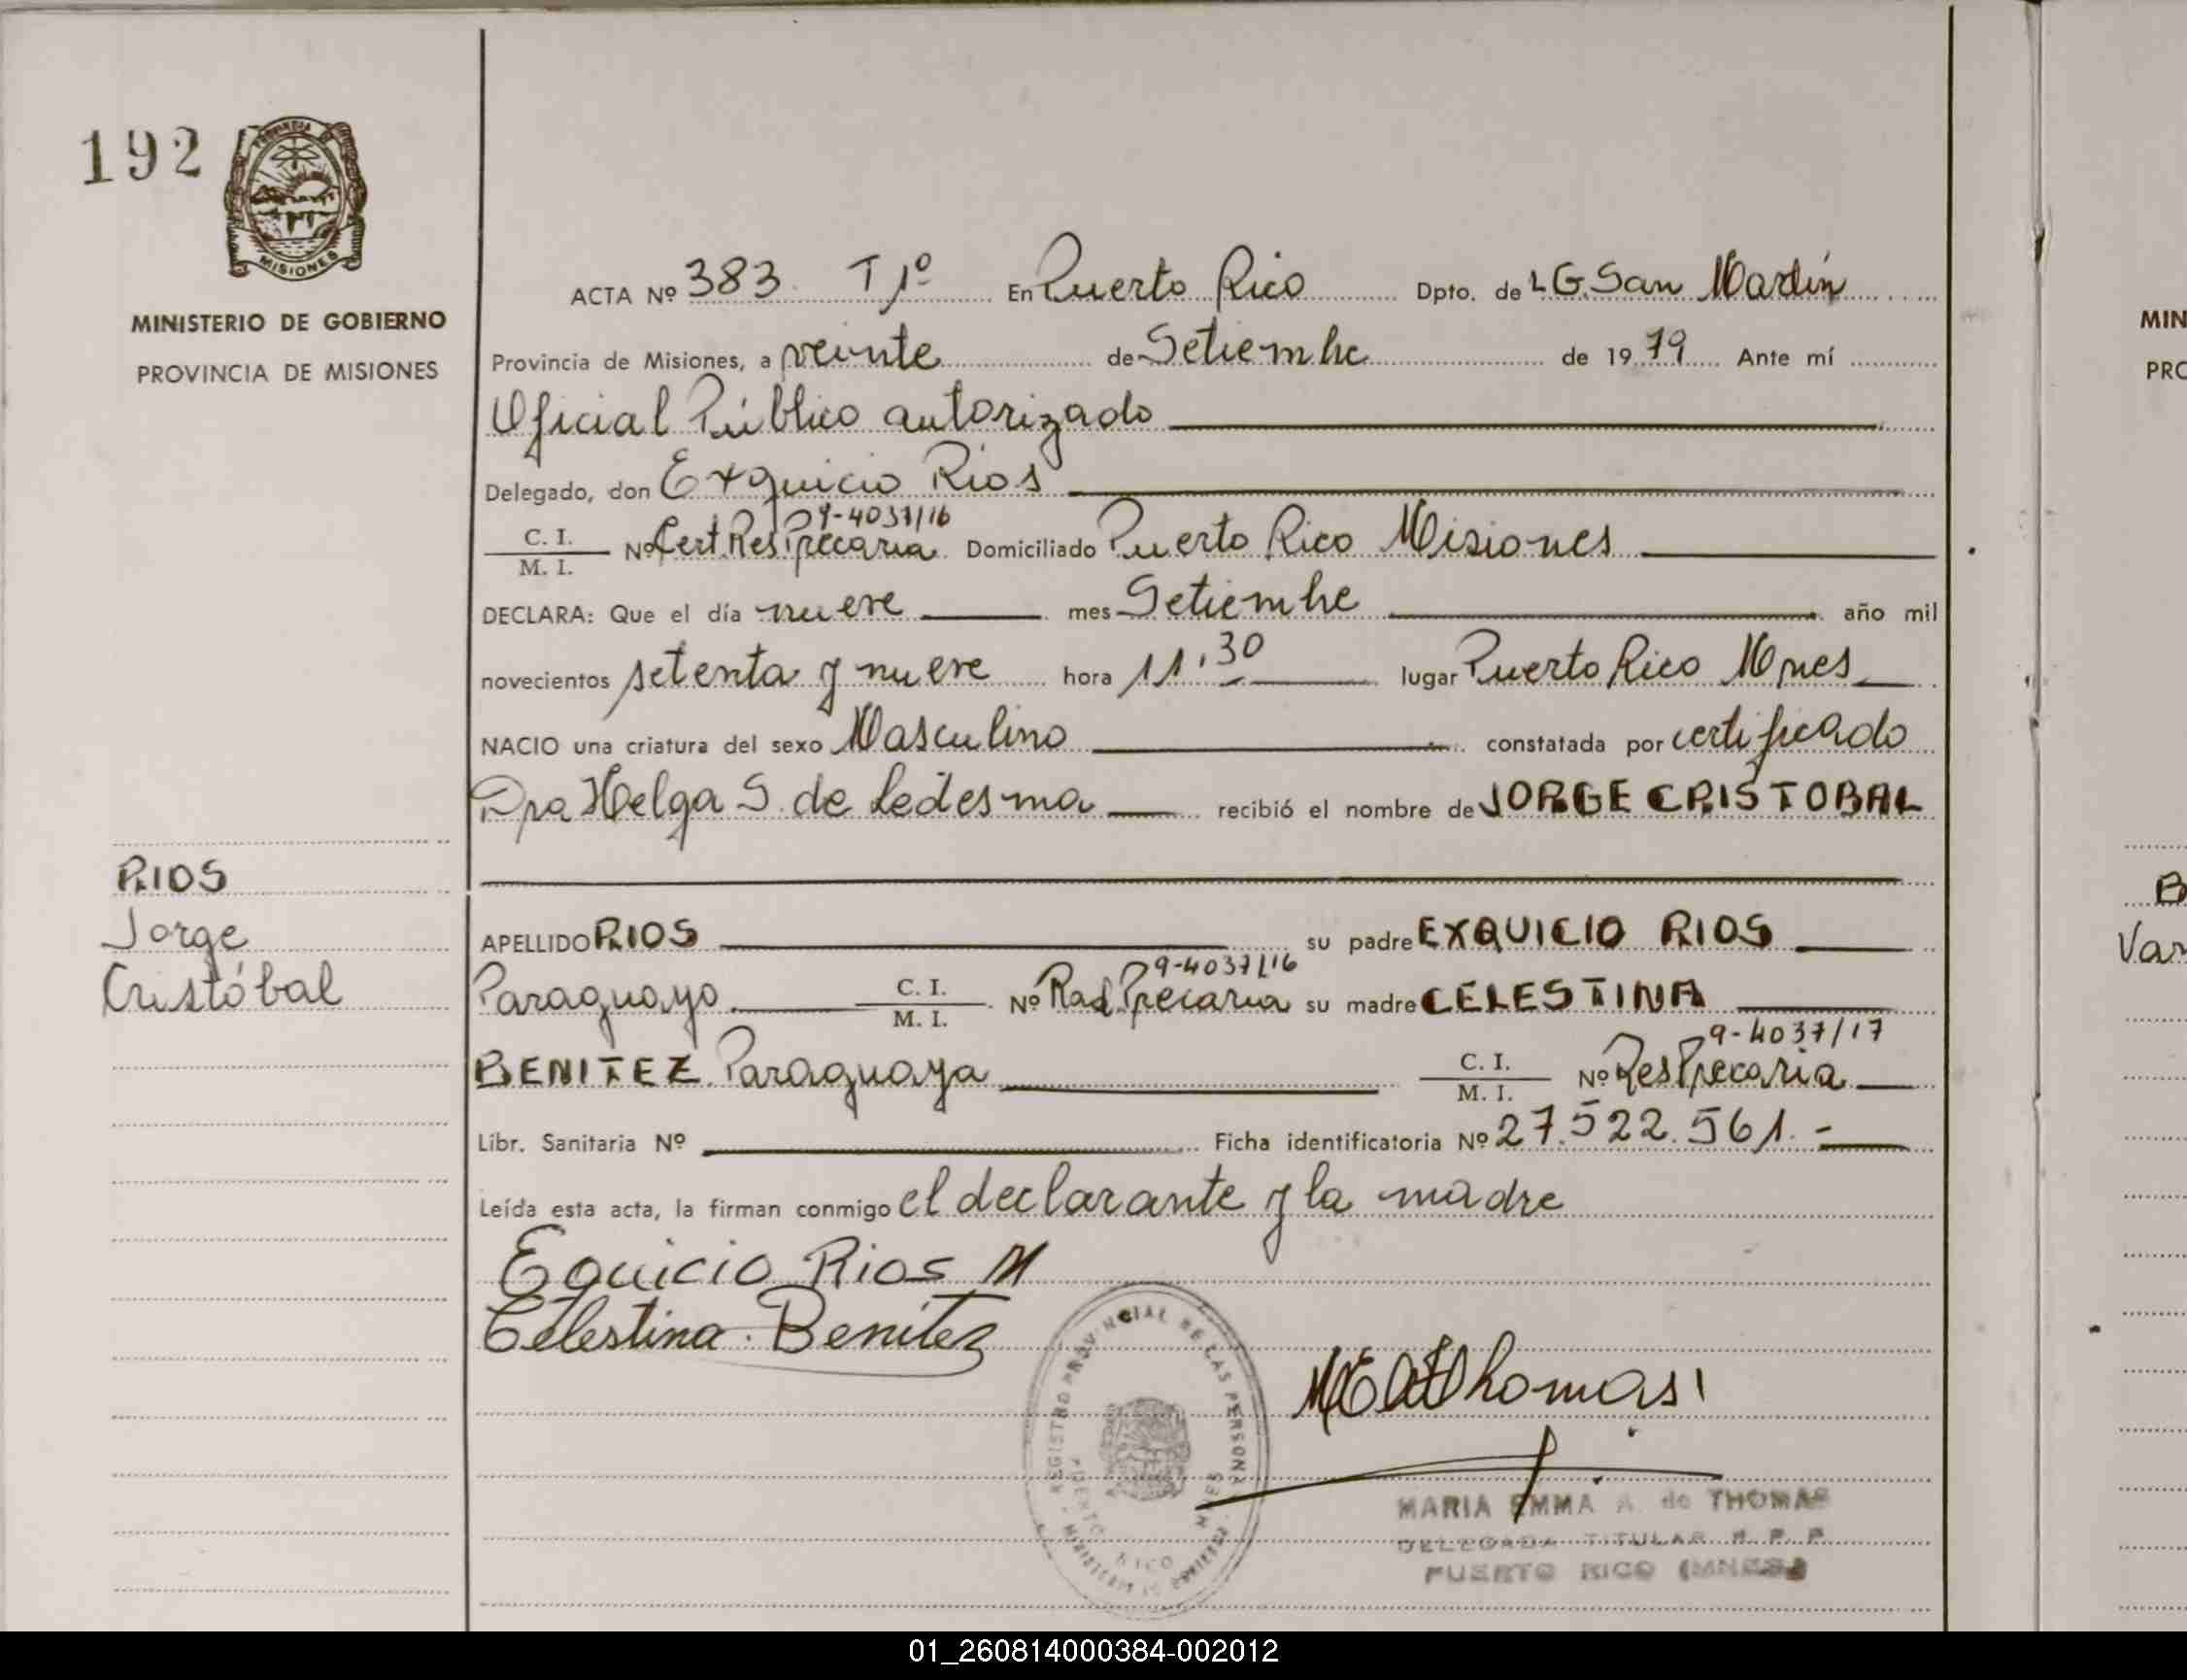 192
PROVINCIA DE
MISIONES
MINISTERIO DE GOBIERNO
PROVINCIA DE MISIONES
RIOS
Jorge
Cristóbal
ACTA Nº 383 T 1º En Puerto Rico Dpto. de L G. San Martín
Provincia de Misiones, a veinte de Setiembre de 1979 Ante mí
Oficial Público autorizado
Delegado, don Exquicio Rios
9-4037/16
C. I. / M. I. Nº Cert. Res. Precaria Domiciliado Puerto Rico Misiones
DECLARA: Que el día nueve mes Setiembre año mil
novecientos setenta y nueve hora 11.30 lugar Puerto Rico Mnes
NACIO una criatura del sexo Masculino constatada por certificado
Dra Helga S. de Ledesma recibió el nombre de JORGE CRISTOBAL
APELLIDO RIOS su padre EXQUICIO RIOS
9-4037/16
Paraguayo C. I. / M. I. Nº Rad. Precaria su madre CELESTINA
9-4037/17
BENITEZ Paraguaya C. I. / M. I. Nº Res Precaria
Libr. Sanitaria Nº Ficha identificatoria Nº 27.522.561.-
Leída esta acta, la firman conmigo el declarante y la madre
Equicio Rios M
Celestina Benitez
REGISTRO PROVINCIAL DE LAS PERSONAS
PUERTO RICO MNES
MINISTERIO DE GOBIERNO
MEAdThomas
MARIA EMMA A. de THOMAS
DELEGADA TITULAR R. P. P.
PUERTO RICO (MNES.)
MIN
PRO
B
Var
01_260814000384-002012